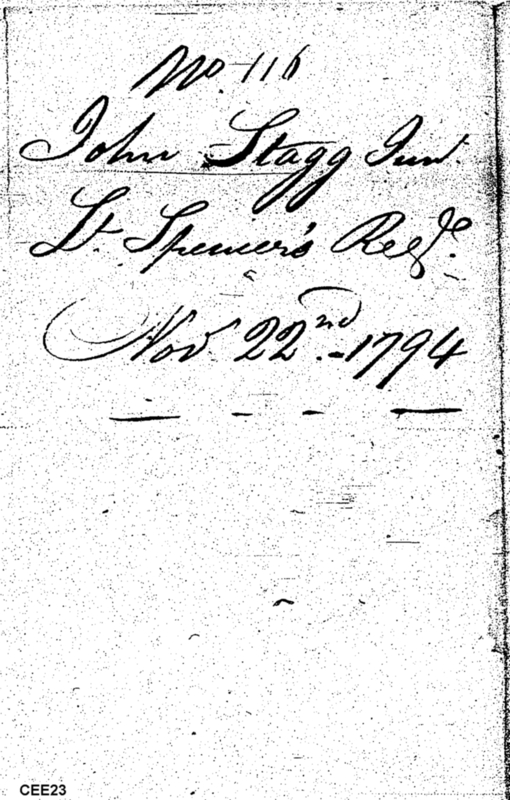 No. 116
John Stagg Jun.
Lt. Spencer's Regt.
Nov 22nd - 1794
CEE23